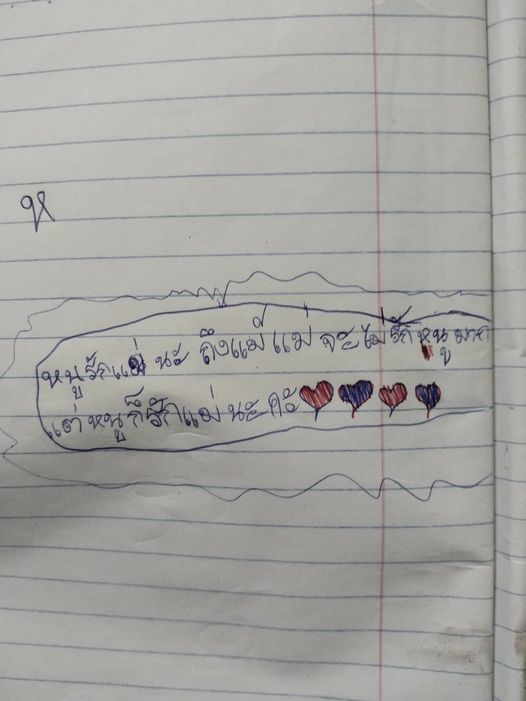 ห
หนูรักแม่ นะ ถึงแม้ แม่ จะไม่ รัก หนู มาก
แต่หนูก็รักแม่ นะ คะ